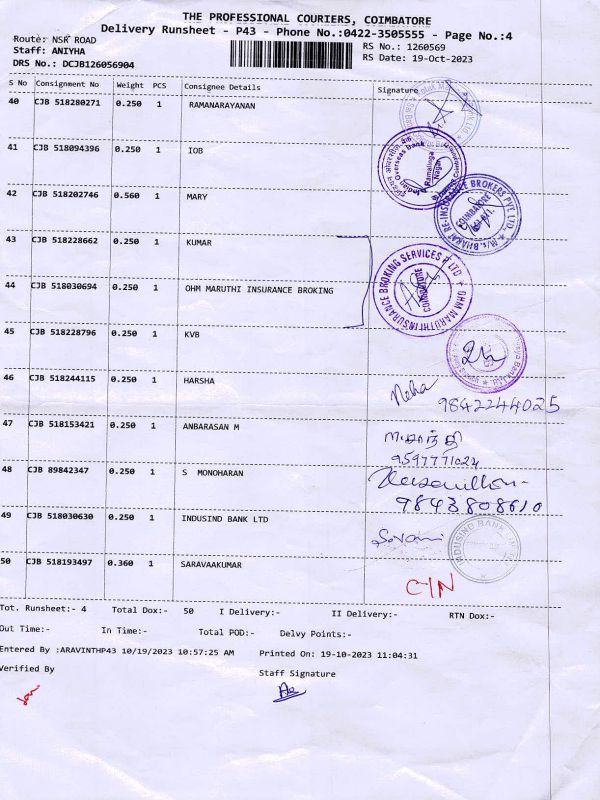 THE PROFESSIONAL COURIERS, COIMBATORE
Delivery Runsheet - P43 - Phone No.:0422-3505555 - Page No.:4
Route: NSR ROAD
RS No.: 1260569
Staff: ANIYHA
RS Date: 19-Oct-2023
DRS No.: DCJB126056904
S No Consignment No Weight PCS Consignee Details Signature
40 CJB 518280271 0.250 1 RAMANARAYANAN
41 CJB 518094396 0.250 1 IOB
Indian Overseas Bank
Ramalinga Nagar
42 CJB 518202746 0.560 1 MARY
M/s. BHARAT RE-INSURANCE BROKERS PVT. LTD.
COIMBATORE
43 CJB 518228662 0.250 1 KUMAR
44 CJB 518030694 0.250 1 OHM MARUTHI INSURANCE BROKING
OHM MARUTHI INSURANCE BROKING SERVICES P LTD
COIMBATORE
45 CJB 518228796 0.250 1 KVB
46 CJB 518244115 0.250 1 HARSHA
Neha
9842244025
47 CJB 518153421 0.250 1 ANBARASAN M
9597771024
48 CJB 89842347 0.250 1 S MONOHARAN
9843808610
49 CJB 518030630 0.250 1 INDUSIND BANK LTD
INDUSIND BANK
50 CJB 518193497 0.360 1 SARAVAAKUMAR
C/N
Tot. Runsheet:- 4 Total Dox:- 50 I Delivery:- II Delivery:- RTN Dox:-
Out Time:- In Time:- Total POD:- Delvy Points:-
Entered By :ARAVINTHP43 10/19/2023 10:57:25 AM Printed On: 19-10-2023 11:04:31
Verified By Staff Signature